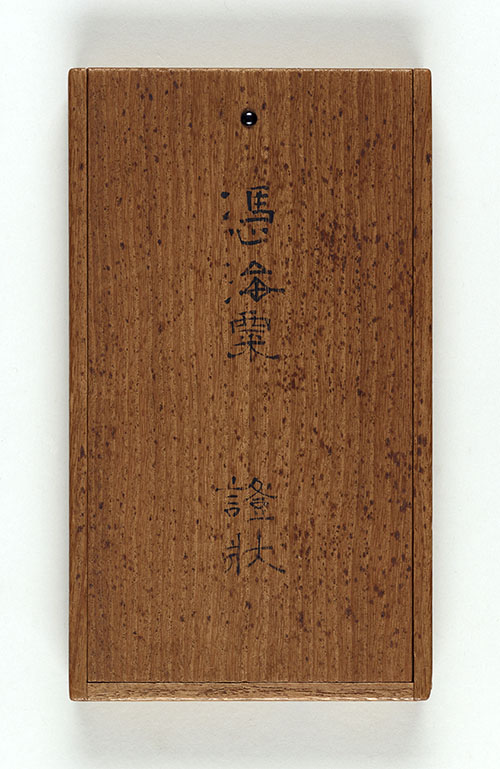 憑海粟 證狀